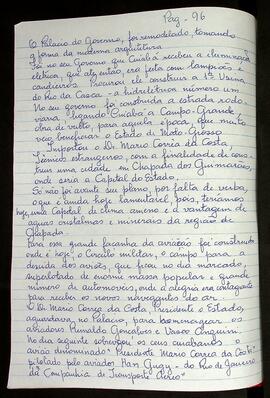 Pag - 96
O Palacio do Governo, foi remodelado, tomando
a forma da moderna arquitetura
Foi no seu Governo que Cuiabá recebeu a iluminação
elétrica, que até então, era feita com lampeões e
candieiros. Procurou ele construir a 1ª Usina
do Rio da Casca - a hidrelétrica número um
No seu governo foi construída a estrada rodo-
viaria ligando Cuiabá a Campo-Grande
obra de vulto, para aquela época, que muito
veio beneficiar o Estado de Mato-Grosso
Importou o Dr. Mario Corrêa da Costa,
Técnicos estrangeiros, com a finalidade de cons-
truir uma cidade em Chapada dos Guimarães,
onde seria a Capital do Estado.
Só não foi avante seu plano, por falta de verba,
o que é ainda hoje lamentável, pois, teriamos
hoje, uma Capital de clima ameno e a vantagem de
aguas cristalinas e minerais da região de
Chapada.
Para essa grande façanha da aviação foi construido
onde é hoje, o Circulo militar, o campo para a
descida dos aviões, que ficou no dia marcado,
superlotado de enorme massa popular e grande
número de automóveis, onde a alegria era contagiante
para receber os novos navegantes do ar.
O Dr. Mario Corrêa da Costa, Presidente do Estado,
aguardava, no Palácio, para homenagear os
aviadores Rinaldo Gonçalves e Vasco Cinquini.
No dia seguinte sobrevoou os ceus cuiabanos o
avião denominado "Presidente Mario Correa da Costa"
pilotado pelo aviador Han Gugy - do Rio de Janeiro
da Companhia de Transporte Aéreo"